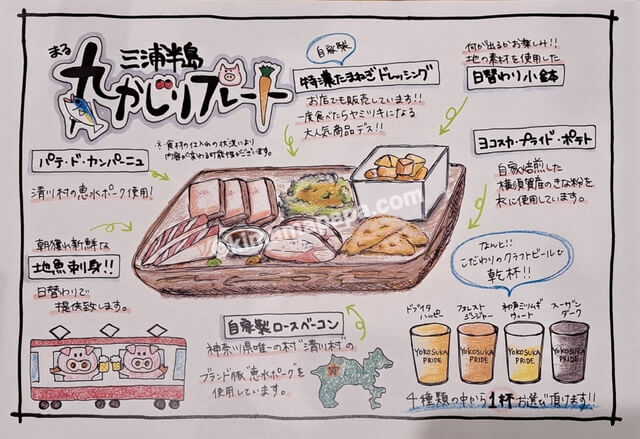 三浦半島
まる
丸かじりプレート
※食材の仕入れの状況により
内容が変わる可能性がございます。
自家製
特濃たまねぎドレッシング
お店でも販売しています!!
一度食べたらヤミツキになる
大人気商品デス!!
何が出るかお楽しみ!!
地の素材を使用した
日替わり小鉢
パテ・ド・カンパーニュ
清川村の恵水ポーク使用!
ヨコスカ・プライド・ポテト
自家焙煎した
横須賀産のきな粉を
衣に使用しています。
朝獲れ新鮮な
地魚刺身!!
日替わりで
提供致します。
自家製ロースベーコン
神奈川県唯一の村"清川村"の
ブランド豚"恵水ポーク"を
使用しています。
なんと!!
こだわりのクラフトビールで
乾杯!!
ドブイタ
ハッピー
フォレスト
ジンジャー
和声ミツムギ
ウィート
スーザン
ダーク
YOKOSUKA
PRIDE
YOKOSUKA
PRIDE
YOKOSUKA
PRIDE
YOKOSUKA
PRIDE
4種類の中から1杯お選び頂けます!!